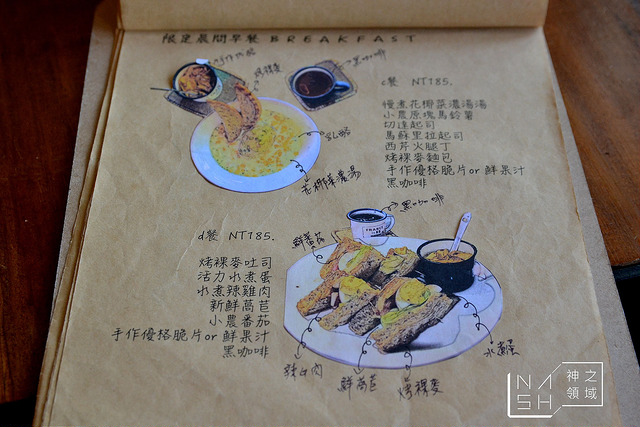 限定晨間早餐 BREAKFAST
手作優格
烤裸麥
黑咖啡
c餐 NT185.
慢煮花椰菜濃湯湯
小農原塊馬鈴薯
切達起司
馬蘇里拉起司
西芹火腿丁
烤裸麥麵包
手作優格脆片or 鮮果汁
黑咖啡
乳酪
花椰菜濃湯
黑咖啡
d餐 NT185.
鮮蕃茄
烤裸麥吐司
活力水煮蛋
水煮辣雞肉
新鮮萵苣
小農番茄
手作優格脆片or 鮮果汁
黑咖啡
雞肉
鮮萵苣
烤裸麥
水煮蛋
NASH 神之領域